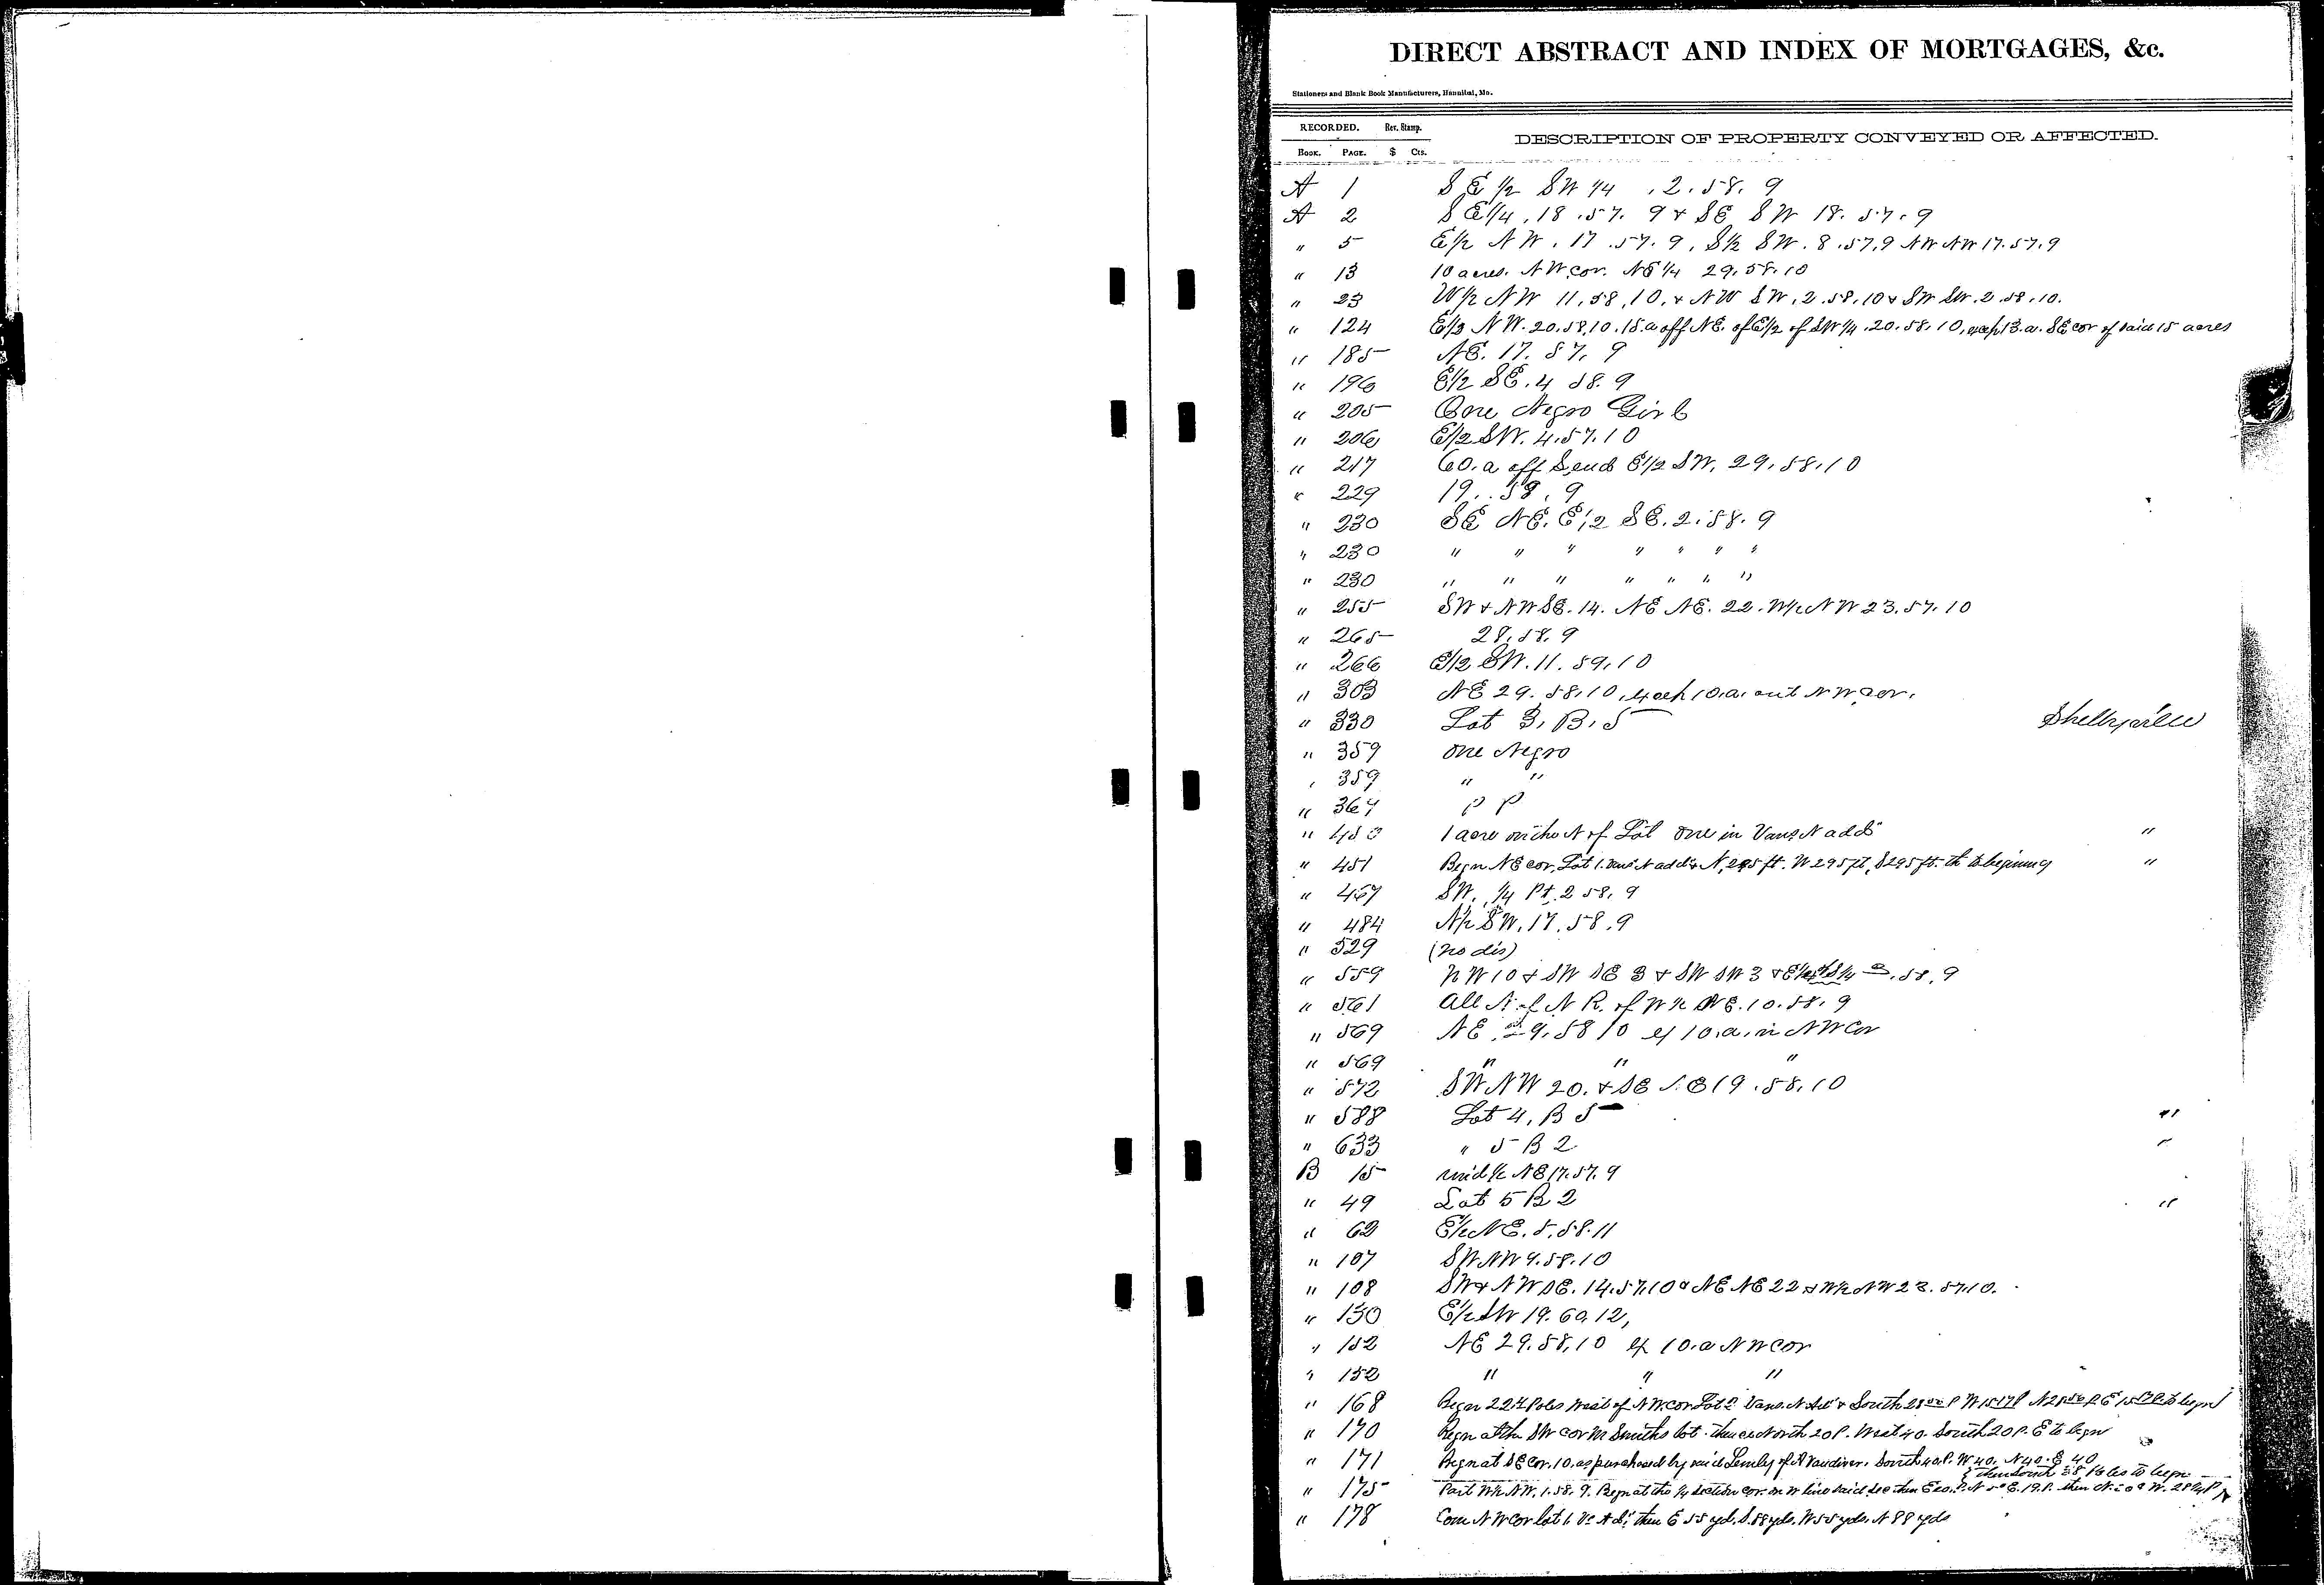 DIRECT ABSTRACT AND INDEX OF MORTGAGES, &c.
Stationers and Blank Book Manufacturers, Hannibal, Mo.
RECORDED. Rev. Stamp.
DESCRIPTION OF PROPERTY CONVEYED OR AFFECTED.
BOOK. PAGE. $ Cts.
A 1 S E 1/2 SW 1/4 . 2 . 58. 9
A 2 S E 1/4 . 18 . 57. 9 & SE SW 18. 57. 9
" 5 E 1/2 NW . 17 . 57. 9, S 1/2 SW . 8 . 57. 9 NW NW 17. 57. 9
" 13 10 acres. NW cor. NE 1/4 29. 58. 10
" 23 W 1/2 NW 11, 58, 10, & NW SW, 2. 58. 10 & SW SW. 2. 58. 10.
" 124 E 1/2 NW. 20. 58. 10. 15. a off NE. of E 1/2 of SW 1/4. 20. 58. 10, 13. a. SE cor of said 15 acres
" 185 NE. 17. 57. 9
" 196 E 1/2 SE. 4 58. 9
" 205 One Negro Girl
" 206 E 1/2 SW. 4. 57. 10
" 217 60. a off S, end E 1/2 SW. 29. 58. 10
" 229 19. . 58. 9
" 230 SE NE. E 1/2 SE. 2. 58. 9
" 230 " " " " " " "
" 230 " " " " " " "
" 255 SW & NW SE. 14. NE NE. 22. W 1/2 NW 23. 57. 10
" 265 28. 58. 9
" 266 E 1/2 SW. 11. 59. 10
" 303 NE 29. 58. 10, 10. a. out NW cor.
" 330 Lot 3, B. 5 Shelbyville
" 359 One Negro
" 359 " "
" 364 P P
" 1 acre on the N of Lot one in Vans N add "
" 451 Begn NE cor, Lot 1. Vans N add & N, 295 ft. W 295 ft, S 295 ft. th to begining "
" 467 SW. 1/4 Pt. 2 58. 9
" 484 N 1/2 SW. 17. 58. 9
" 529 (no dis)
" 559 NW 10 & SW SE 3 & SW SW 3 & 58. 9
" 561 All N of N R. of W 1/2 NE. 10. 58. 9
" 569 NE 29. 58 10 ex 10. a. in NW Cor
" 569 " " "
" 572 SW NW 20. & SE NE 19. 58. 10
" 588 Lot 4, B 5 "
" 633 " 5 B 2 "
B 15 und 1/2 NE 17. 57. 9
" 49 Lot 5 B 2 "
" 62 E 1/2 NE. 5. 58. 11
" 107 SW NW 9. 58. 10
" 108 SW & NW SE. 14. 57. 10 & NE NE 22 & W 1/2 NW 23. 57. 10.
" 130 E 1/2 SW 19. 60. 12,
" 152 NE 29. 58. 10 ex 10. a NW cor
" 152 " " "
" 168 Began 22 Poles West of NW cor Lot Vans. N South
" 170 Begn at the SW cor M Smiths lot. thence North 20 P. West 40. South 20 P. E to begn
" 171 Begn at SE Cor. 10. as purchased by said of Vandiver. South 40 P. W 40. N 40. E 40
then South 28 Poles to begn
" 175 Part W 1/2 NW. 1. 58. 9. Begn at the 1/4 section cor. on W line said sec then
" 178 Com NW Cor lot 1. then E 55 yd. S. 88 yds. W 55 yds. N 88 yds